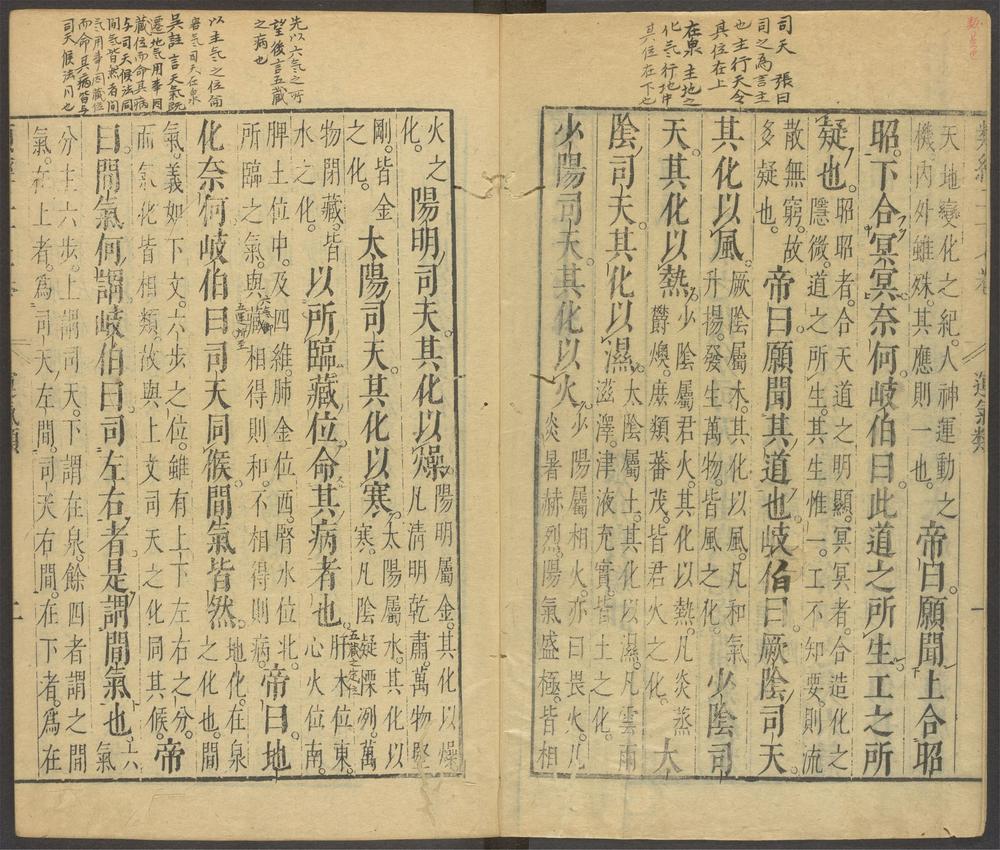 司天 張曰
司之為言主
也主行天令
其位在上
在泉 主地之
化氣行地中
其位在下也
天地變化之紀。人神運動之
機。內外雖殊。其應則一也。
帝曰。願聞上合昭
昭。下合冥冥奈何。岐伯曰。此道之所生。工之所
疑也。
昭昭者。合天道之明顯。冥冥者。合造化之
隱微。道之所生。其生惟一。工不知要。則流
散無窮。故
多疑也。
帝曰。願聞其道也。岐伯曰。厥陰司天。
其化以風。
厥陰屬木。其化以風。凡和氣
升揚。發生萬物。皆風之化。
少陰司
天。其化以熱。
少陰屬君火。其化以熱。凡炎蒸
鬱燠。庶類蕃茂。皆君火之化。
太
陰司天。其化以濕。
太陰屬土。其化以濕。凡雲雨
滋澤。津液充實。皆土之化。
少陽司天。其化以火。
少陽屬相火。亦曰畏火。凡
炎暑赫烈。陽氣盛極。皆相
先以六氣之所
望後言五藏
之病也
以主氣之位命
吳註 言天氣既
遷地氣用事因
藏位而命其病
與司天候法同
間氣皆然者間
氣用事因藏位
而命其病皆与
司天候法同也
火之
化。
陽明司天。其化以燥。
陽明屬金。其化以燥
凡清明乾肅。萬物堅
剛。皆金
之化。
太陽司天。其化以寒。
太陽屬水。其化以
寒。凡陰凝慄冽。萬
物閉藏。皆
水之化。
以所臨藏位。命其病者也。
五藏之定位
肝木位東。
心火位南。
脾土位中。及四維。肺金位西。腎水位北。
所臨之氣。與藏相得則和。不相得則病。
帝曰。地
化奈何。岐伯曰。司天同候。間氣皆然。
地化。在泉
之化也。間
氣。義如下文。六步之位。雖有上下左右之分。
而氣化皆相類。故與上文司天之化同其候。
帝
曰。間氣何謂。岐伯曰。司左右者。是謂間氣也。
六
氣
分主六步。上謂司天。下謂在泉。餘四者謂之間
氣。在上者。為司天左間。司天右間。在下者。為在